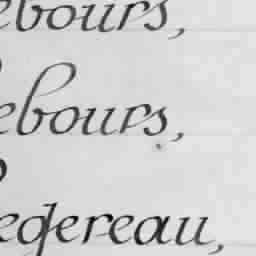 ebours,
ebours,
egereau,